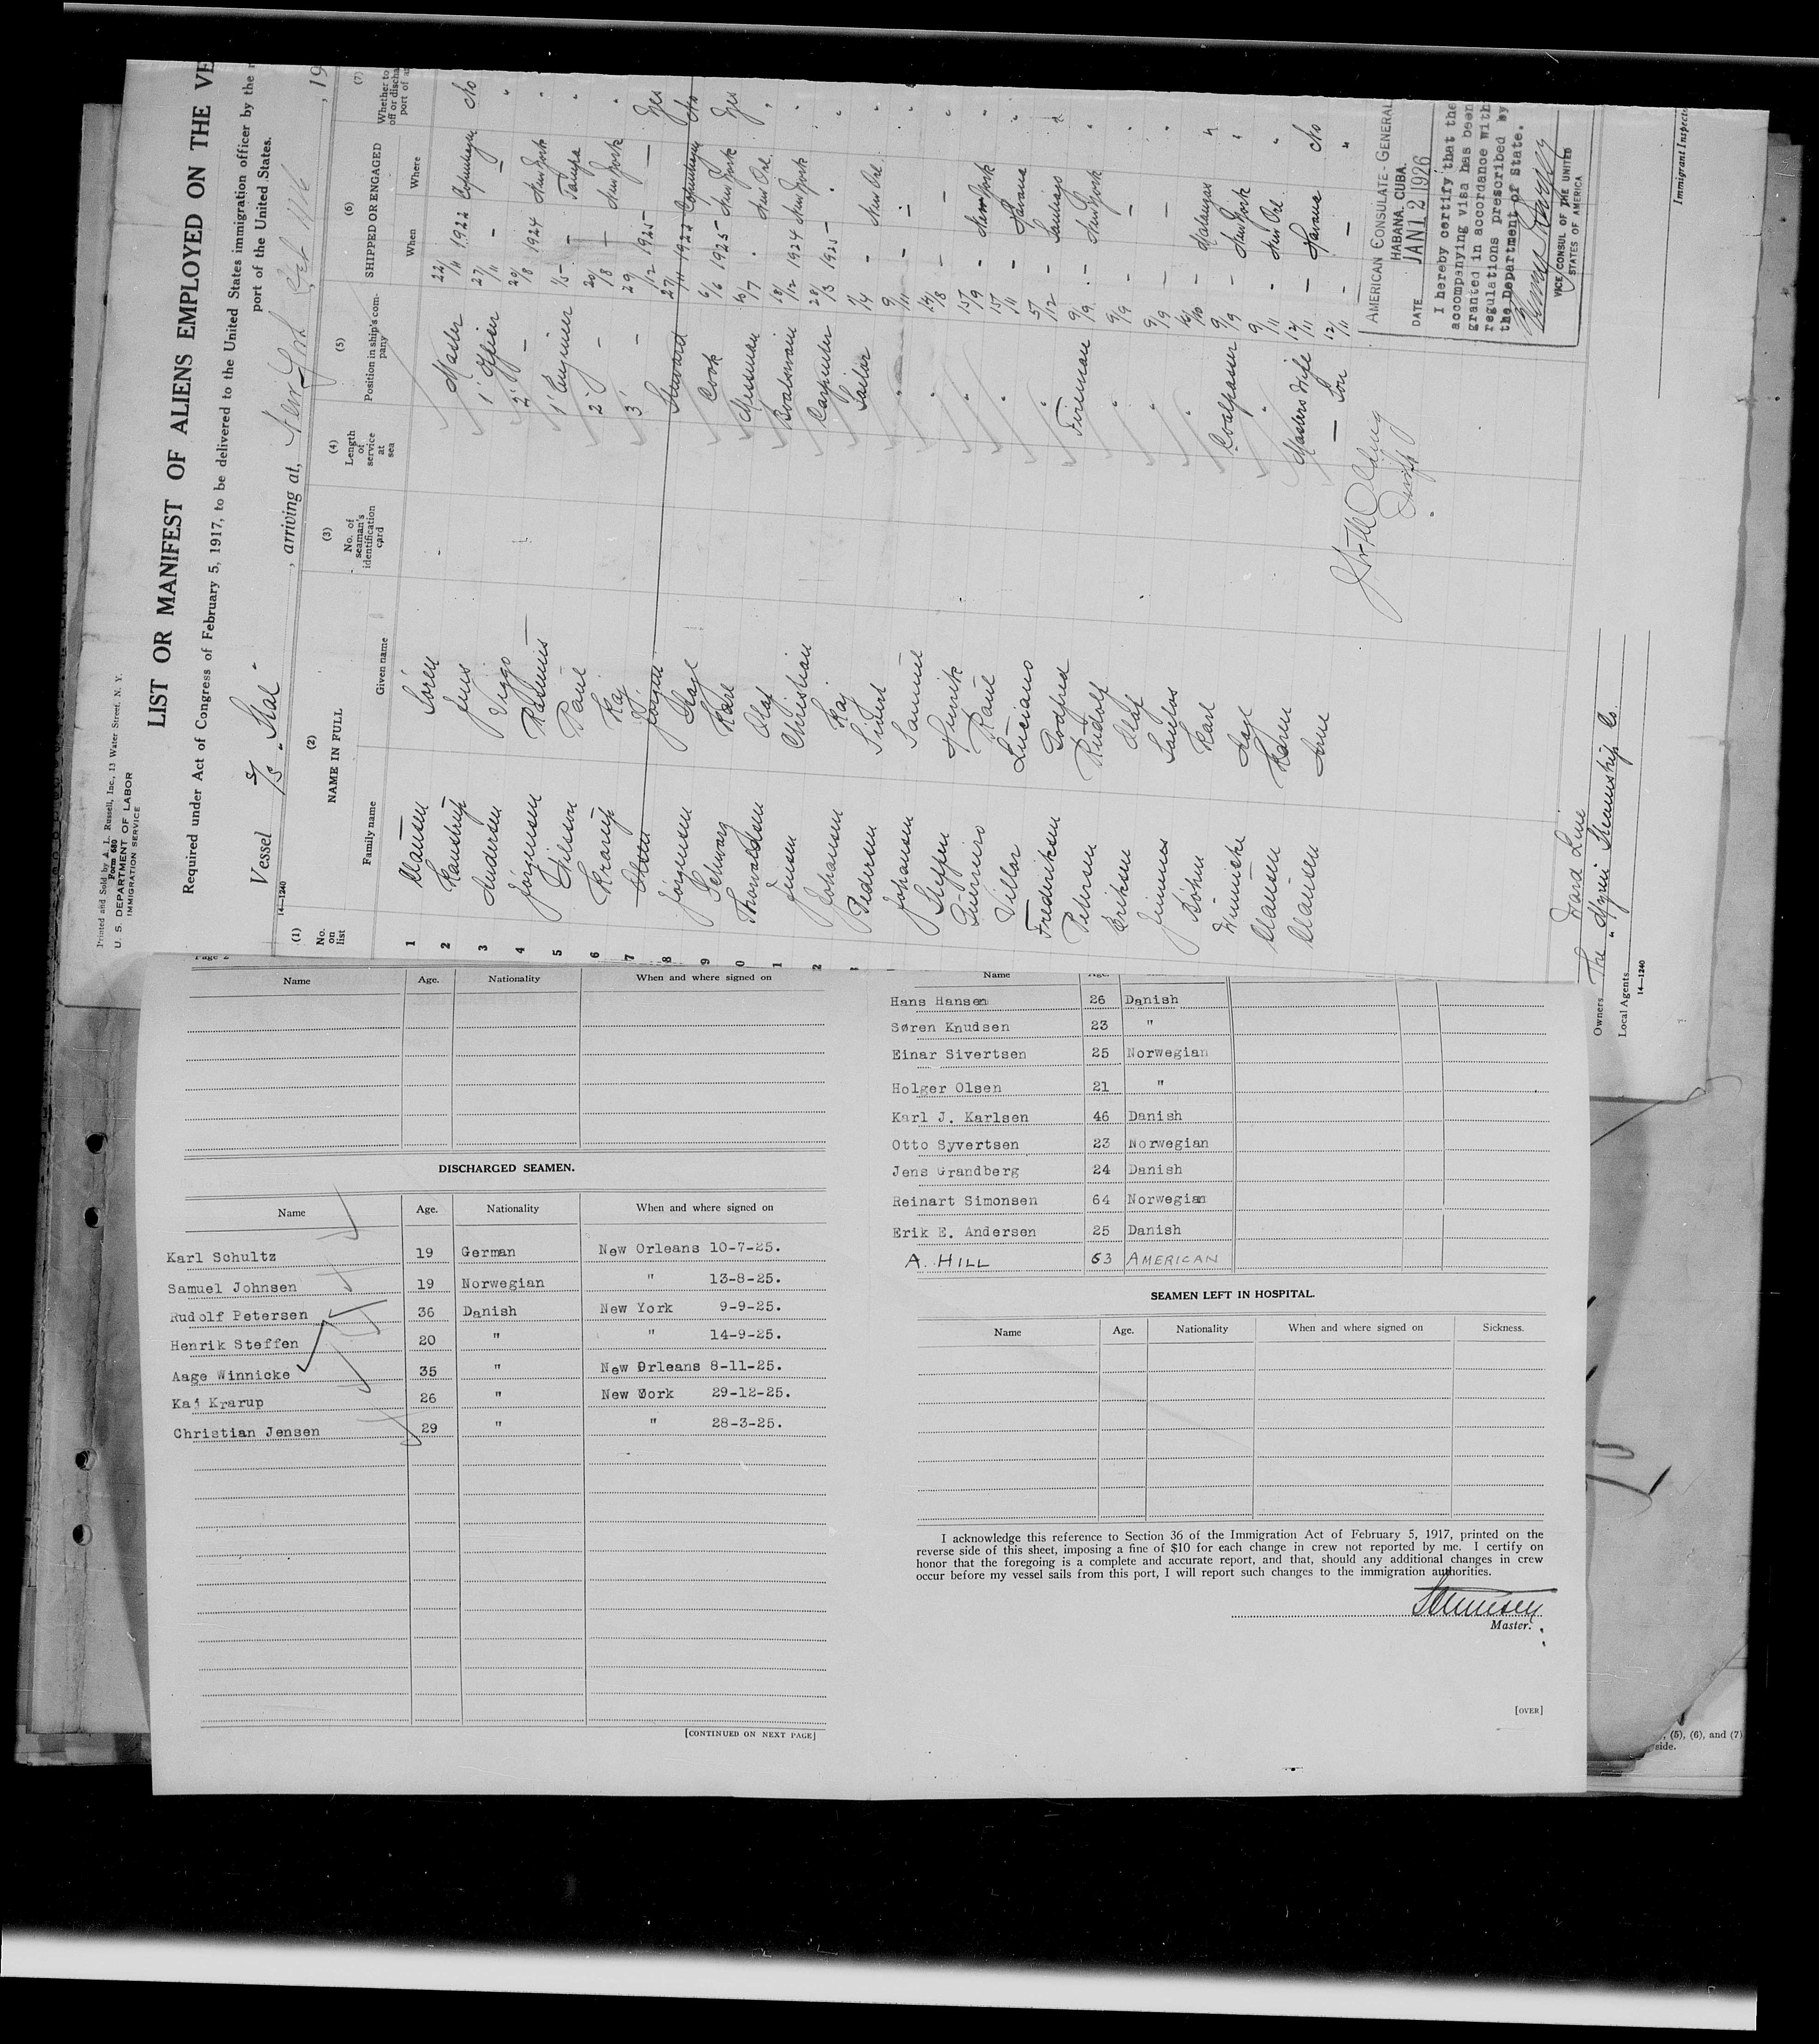 Printed and Sold by A. L. Russell, Inc., 13 Water Street, N. Y.
Form 680
U. S. DEPARTMENT OF LABOR
IMMIGRATION SERVICE
LIST OR MANIFEST OF ALIENS EMPLOYED ON THE VE
Required under Act of Congress of February 5, 1917, to be delivered to the United States immigration officer by the
port of the United States.
Vessel S/S "Skal" , arriving at, New York , 19
14—1240
(1) (2) (3) (4) (5) (6) (7)
No. on list
NAME IN FULL
Family name Given name
No. of seaman's identification card
Length of service at sea
Position in ship's company
SHIPPED OR ENGAGED
When Where
Whether to
off or discha
port of ar
1 Clausen Sören Master 22/11 1922 Copenhagen No
2 Kanstrup Jens 1' Officer 27/11 - — "
3 Andersen Viggo 2' — 29/8 1924 New York "
4 Jörgensen Rasmus 1' Engineer 1/5 - Tampa "
5 Nilsson Paul 2' - 20/8 - New York "
6 Krarup Kaj 3' - 29/12 1925 — Yes
7 Olsen Jörgen Steward 27/11 1922 Copenhagen No
8 Jörgensen Aage Cook 6/6 1925 New York Yes
9 Schwarz Karl Messman 10/7 " New Orl. "
0 Thorvaldsen Olaf Boatswain 18/12 1924 New York "
1 Jensen Christian Carpenter 28/3 1925 " "
2 Johansen Kaj Sailor 1/14 - New Orl. "
Pedersen Sigurd " 9/11 - - "
Johansen Samuel " 14/8 - - "
Steffen Henrik " 15/9 - New York "
Guerniro Raul " 15/11 - Havana "
Villar Luciano " 5/12 - Santiago "
Frederiksen Godfred Fireman 9/9 - New York "
Petersen Rudolf " 9/9 - - "
Eriksen Olaf " 9/9 - - "
Jimines Santos " 16/10 - Matanzas "
Böhn Karl Coalpasser 9/9 - New York "
Winnicke Aage " 9/11 - New Orl. "
Clausen Karen Masters Wife 12/11 - Havana No
Clausen Arne — Son 12/11 - — "
AMERICAN CONSULATE-GENERAL
HABANA, CUBA.
DATE JAN 12 1926
I hereby certify that the
accompanying visa has been
granted in accordance with
regulations prescribed by
the Department of State.
VICE CONSUL OF THE UNITED
STATES OF AMERICA
Immigrant Inspecto
Ward Line
Owners The Myren Steamship Co.
Local Agents "
14—1240
Page 2
Name Age. Nationality When and where signed on
DISCHARGED SEAMEN.
Name Age. Nationality When and where signed on
Karl Schultz 19 German New Orleans 10-7-25.
Samuel Johnsen 19 Norwegian " 13-8-25.
Rudolf Petersen 36 Danish New York 9-9-25.
Henrik Steffen 20 " " 14-9-25.
Aage Winnicke 35 " New Orleans 8-11-25.
Kaj Krarup 26 " New York 29-12-25.
Christian Jensen 29 " " 28-3-25.
[CONTINUED ON NEXT PAGE]
Name Age.
Hans Hansen 26 Danish
Søren Knudsen 23 "
Einar Sivertsen 25 Norwegian
Holger Olsen 21 "
Karl J. Karlsen 46 Danish
Otto Syvertsen 23 Norwegian
Jens Grandberg 24 Danish
Reinart Simonsen 64 Norwegian
Erik E. Andersen 25 Danish
A. HILL 53 AMERICAN
SEAMEN LEFT IN HOSPITAL.
Name Age. Nationality When and where signed on Sickness.
I acknowledge this reference to Section 36 of the Immigration Act of February 5, 1917, printed on the
reverse side of this sheet, imposing a fine of $10 for each change in crew not reported by me. I certify on
honor that the foregoing is a complete and accurate report, and that, should any additional changes in crew
occur before my vessel sails from this port, I will report such changes to the immigration authorities.
Master.
[OVER]
, (5), (6), and (7)
side.